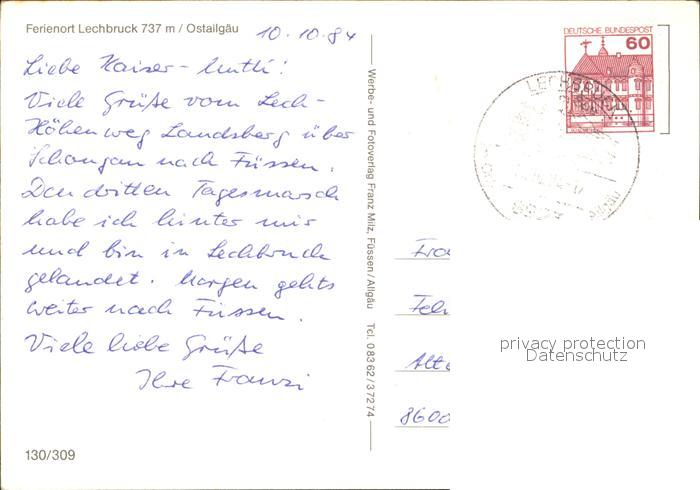 Ferienort Lechbruck 737 m / Ostallgäu
10.10.84
Liebe Kaiser-Mutti!
Viele Grüße vom Lech-
Höhenweg Landsberg über
Schongau nach Füssen.
Den dritten Tagesmarsch
habe ich hinter mir
und bin in Lechbruck
gelandet. Morgen gehts
weiter nach Füssen.
Viele liebe Grüße
Ihre Franzi
130/309
Werbe- und Fotoverlag Franz Milz, Füssen/Allgäu Tel. 08362/37274
DEUTSCHE BUNDESPOST
60
LECHBRUCK
8600
privacy protection
Datenschutz